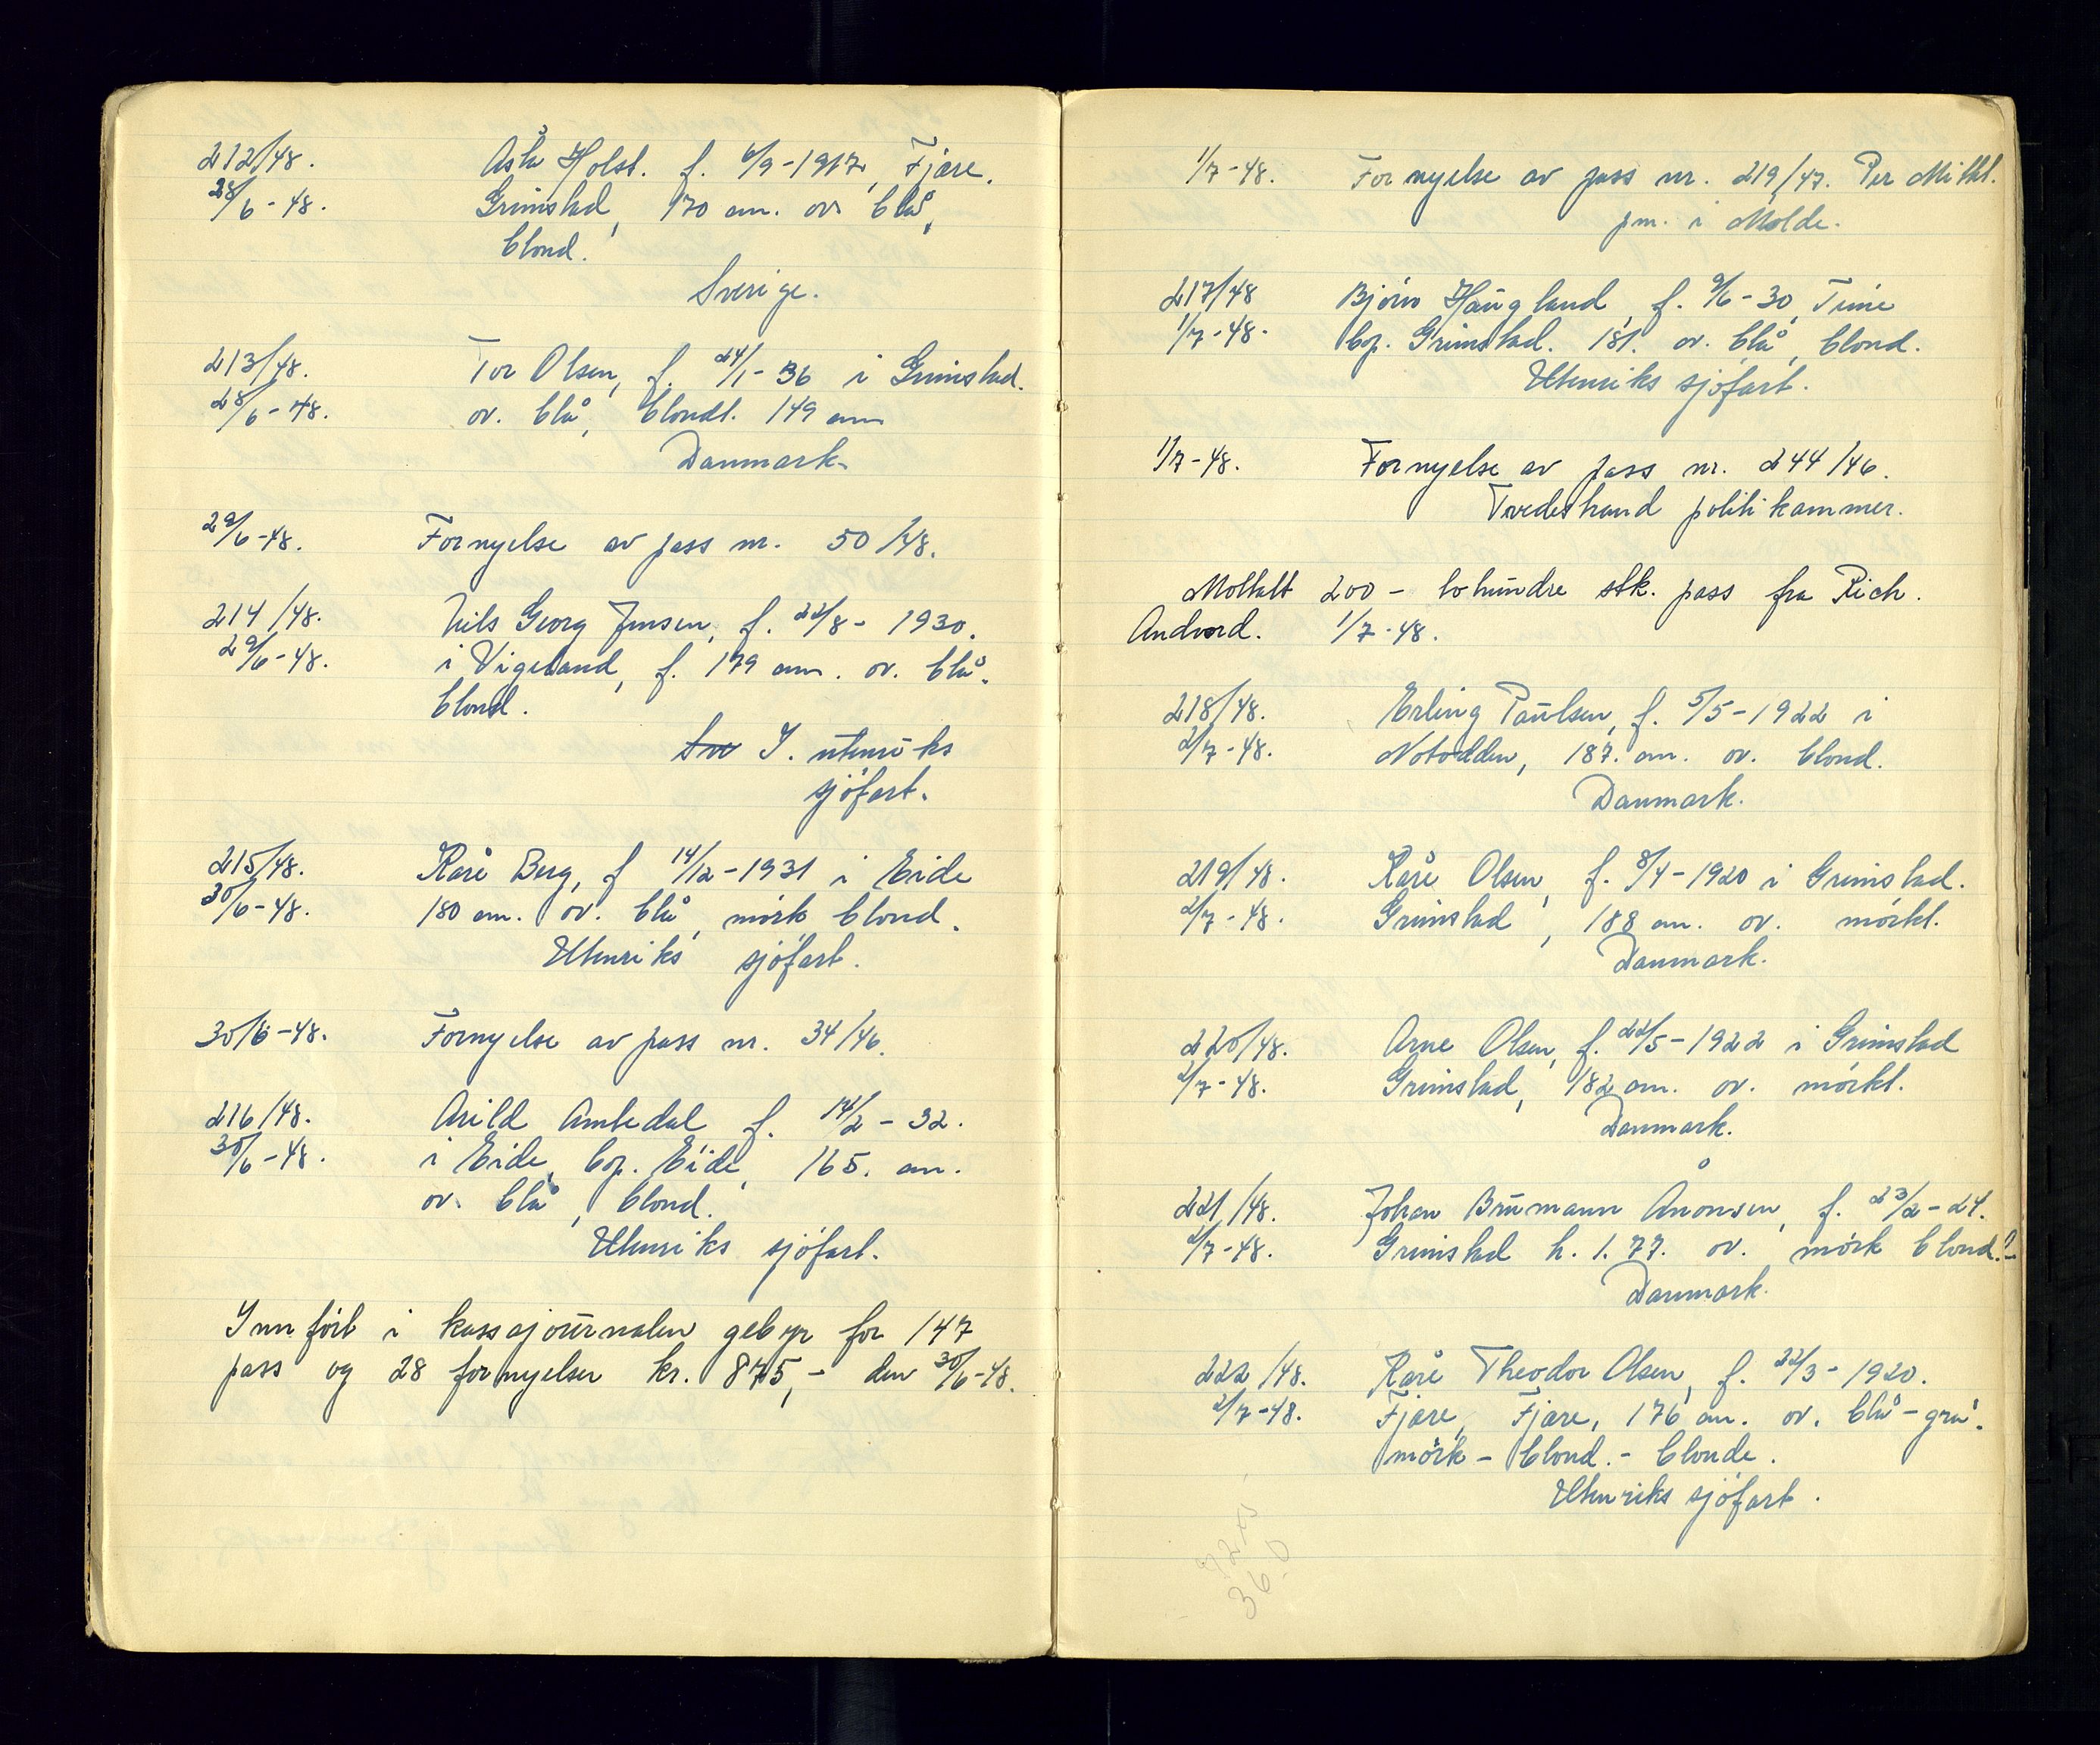 212/48. Åsta Holst. f. 6/9-1917, Fjære.
28/6-48. Grimstad, 170 cm. ov. blå,
blond.
Sverige.
213/48. Tor Olsen, f. 24/1-36 i Grimstad.
28/6-48. ov. blå, blondt. 149 cm
Danmark.
29/6-48. Fornyelse av pass nr. 50/48.
214/48. Nils Georg Jensen, f. 22/8-1930.
29/6-48. i Vigeland, f. 179 cm. ov. blå.
blond.
I. utenriks
sjöfart.
215/48. Kåre Berg, f 14/12-1931 i Eide
30/6-48. 180 cm. ov. blå, mörk blond.
Utenriks sjöfart.
30/6-48. Fornyelse av pass nr. 34/46.
216/48. Arild Amtedal f. 14/2-32.
30/6-48. i Eide, bop. Eide, 165. cm.
ov. blå, blond.
Utenriks sjöfart.
Innfört i kassajournalen gebyr for 147
pass og 28 fornyelser kr. 875,- den 30/6-48.
1/7-48. Fornyelse av pass nr. 219/47. Per
pm. i Molde.
217/48 Björn Haugland, f. 9/6-30,
1/7-48. bop. Grimstad. 181. ov. blå, blond.
Utenriks sjöfart.
1/7-48. Fornyelse av pass nr. 244/46.
Tvedestrand politikammer.
Mottatt 200 - tohundre stk. pass fra Rich.
Andvord. 1/7-48.
218/48. Erling Paulsen, f. 5/5-1922 i
2/7-48. Notodden, 187. cm. ov. blond.
Danmark.
219/48. Kåre Olsen, f. 8/4-1920 i Grimstad.
2/7-48. Grimstad, 188 cm. ov. mörkt.
Danmark.
220/48. Arne Olsen, f. 22/5-1922 i Grimstad
2/7-48. Grimstad, 182 cm. ov. mörkt.
Danmark.
221/48. Johan Brumann Ånonsen, f. 23/2-24.
2/7-48. Grimstad h. 1.77. ov. mörk blond.
Danmark.
222/48. Kåre Theodor Olsen, f. 22/3-1920.
2/7-48. Fjære, Fjære, 176 cm. ov. blå-grå.
mörk-blond.- blonde.
Utenriks sjöfart.